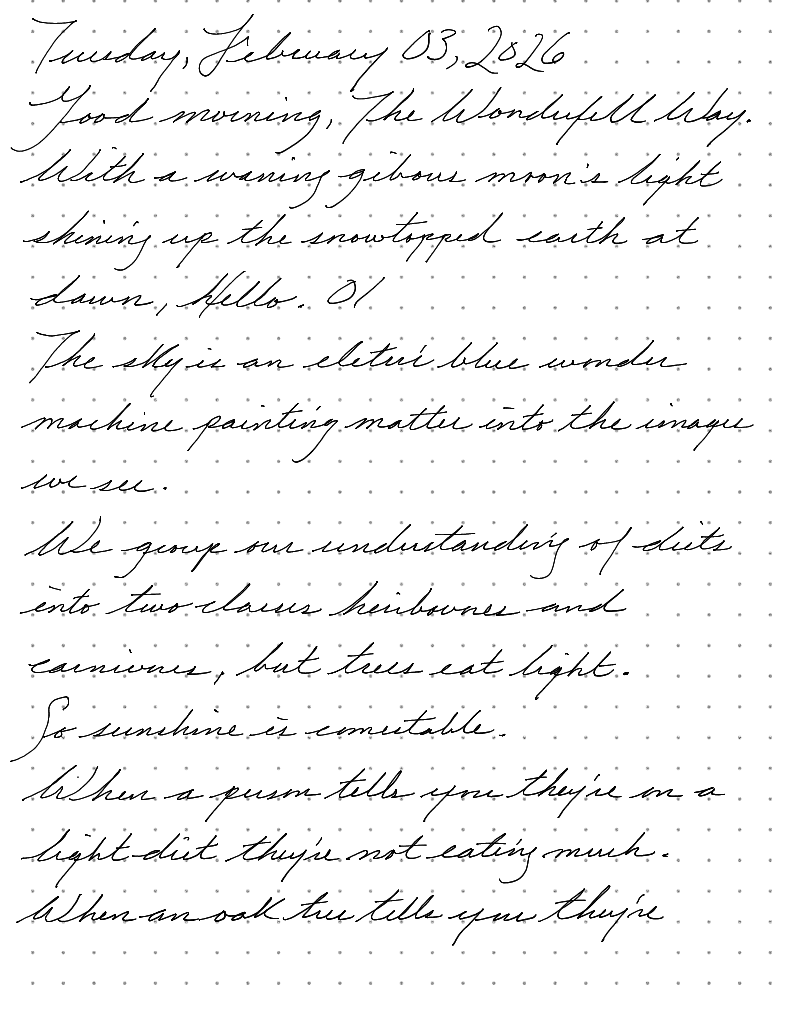 Tuesday, February 03, 2026
Good morning, The Wonderfell Way.
With a waning gibous moon's light
shining up the snowtopped earth at
dawn, Hello. 01
The sky is an eletric blue wonder
machine painting matter into the images
we see.
We group our understanding of diets
into two classes heirbovores and
carnivores, but trees eat light.
So sunshine is comestable.
When a person tells you they're on a
light diet they're not eating much.
When an oak tree tells you they're